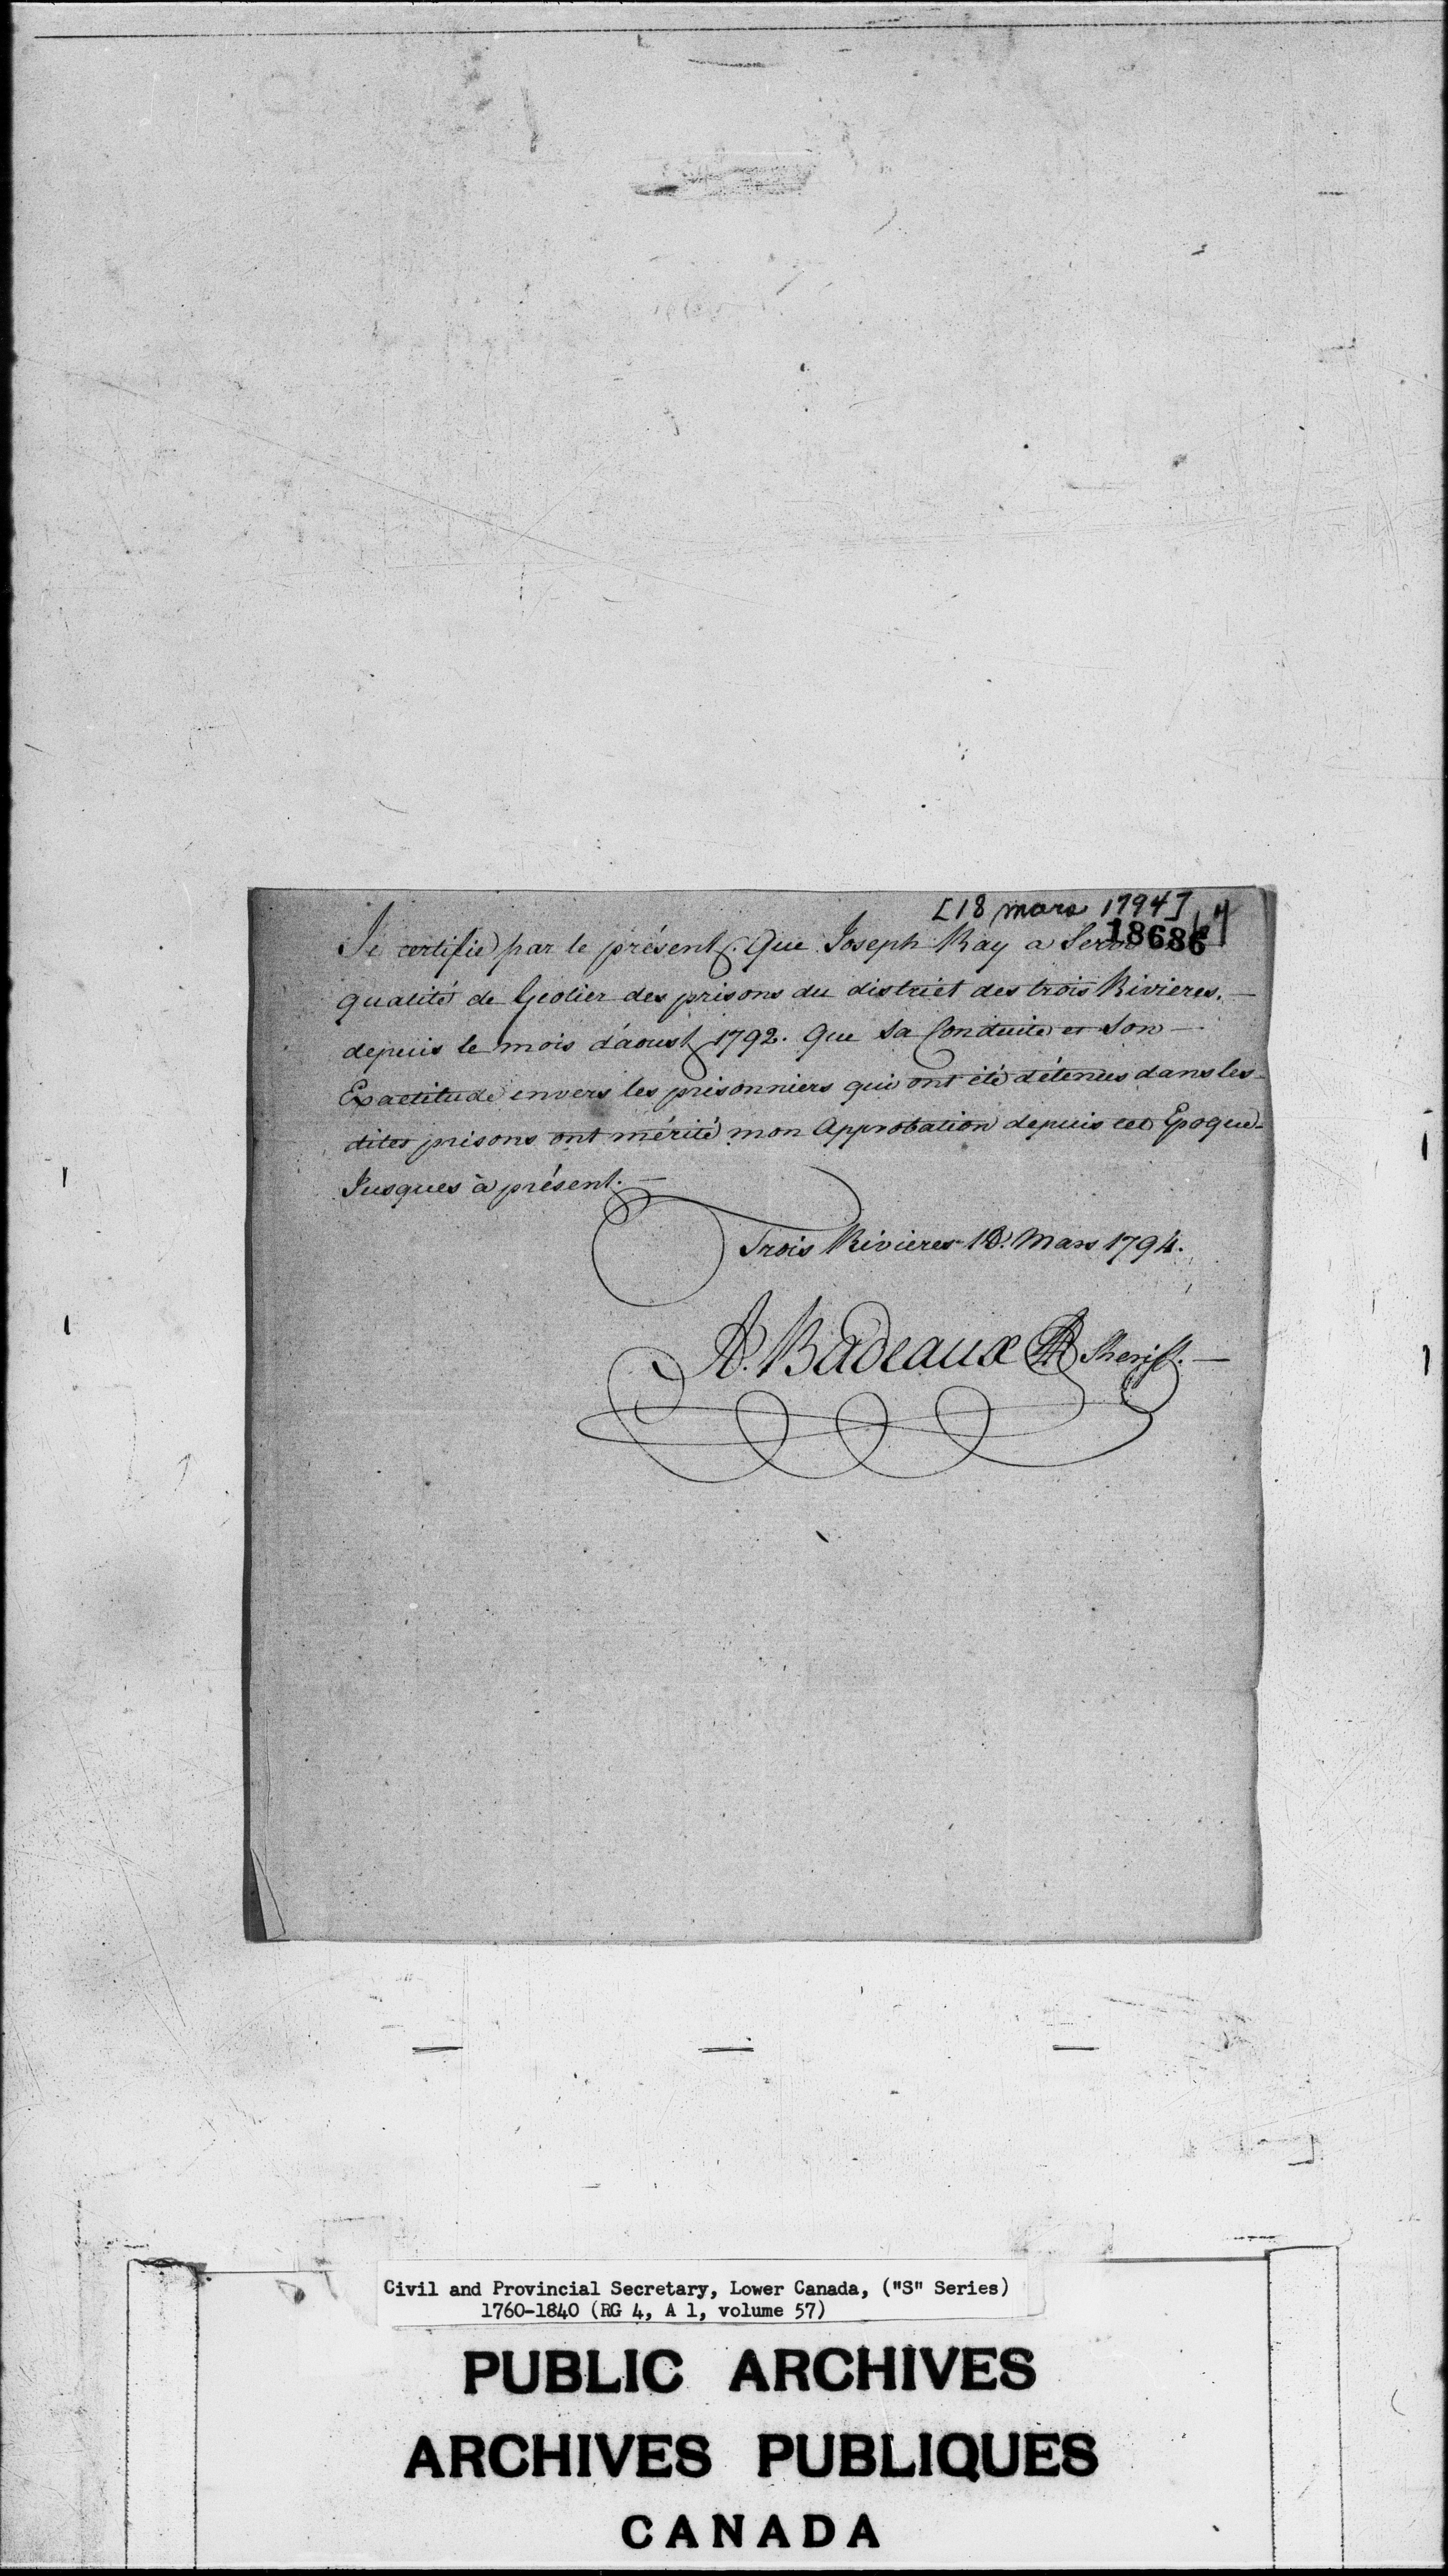 [18 mars 1794]
18686
Je certifie par le présent. Que Joseph Ray a Servi
qualité de Geolier des prisons du district des trois Rivieres.—
depuis le mois d'áoust 1792. Que Sa Conduite et Son—
Exactitude envers les prisonniers qui ont été détenus dans les-
dites prisons ont mérité mon Approbation depuis cet Epoque-
Jusques à présent.—
Trois Rivieres 18. Mars 1794.
A. Badeaux Sheriff.—
Civil and Provincial Secretary, Lower Canada, ("S" Series)
1760-1840 (RG 4, A 1, volume 57)
PUBLIC ARCHIVES
ARCHIVES PUBLIQUES
CANADA